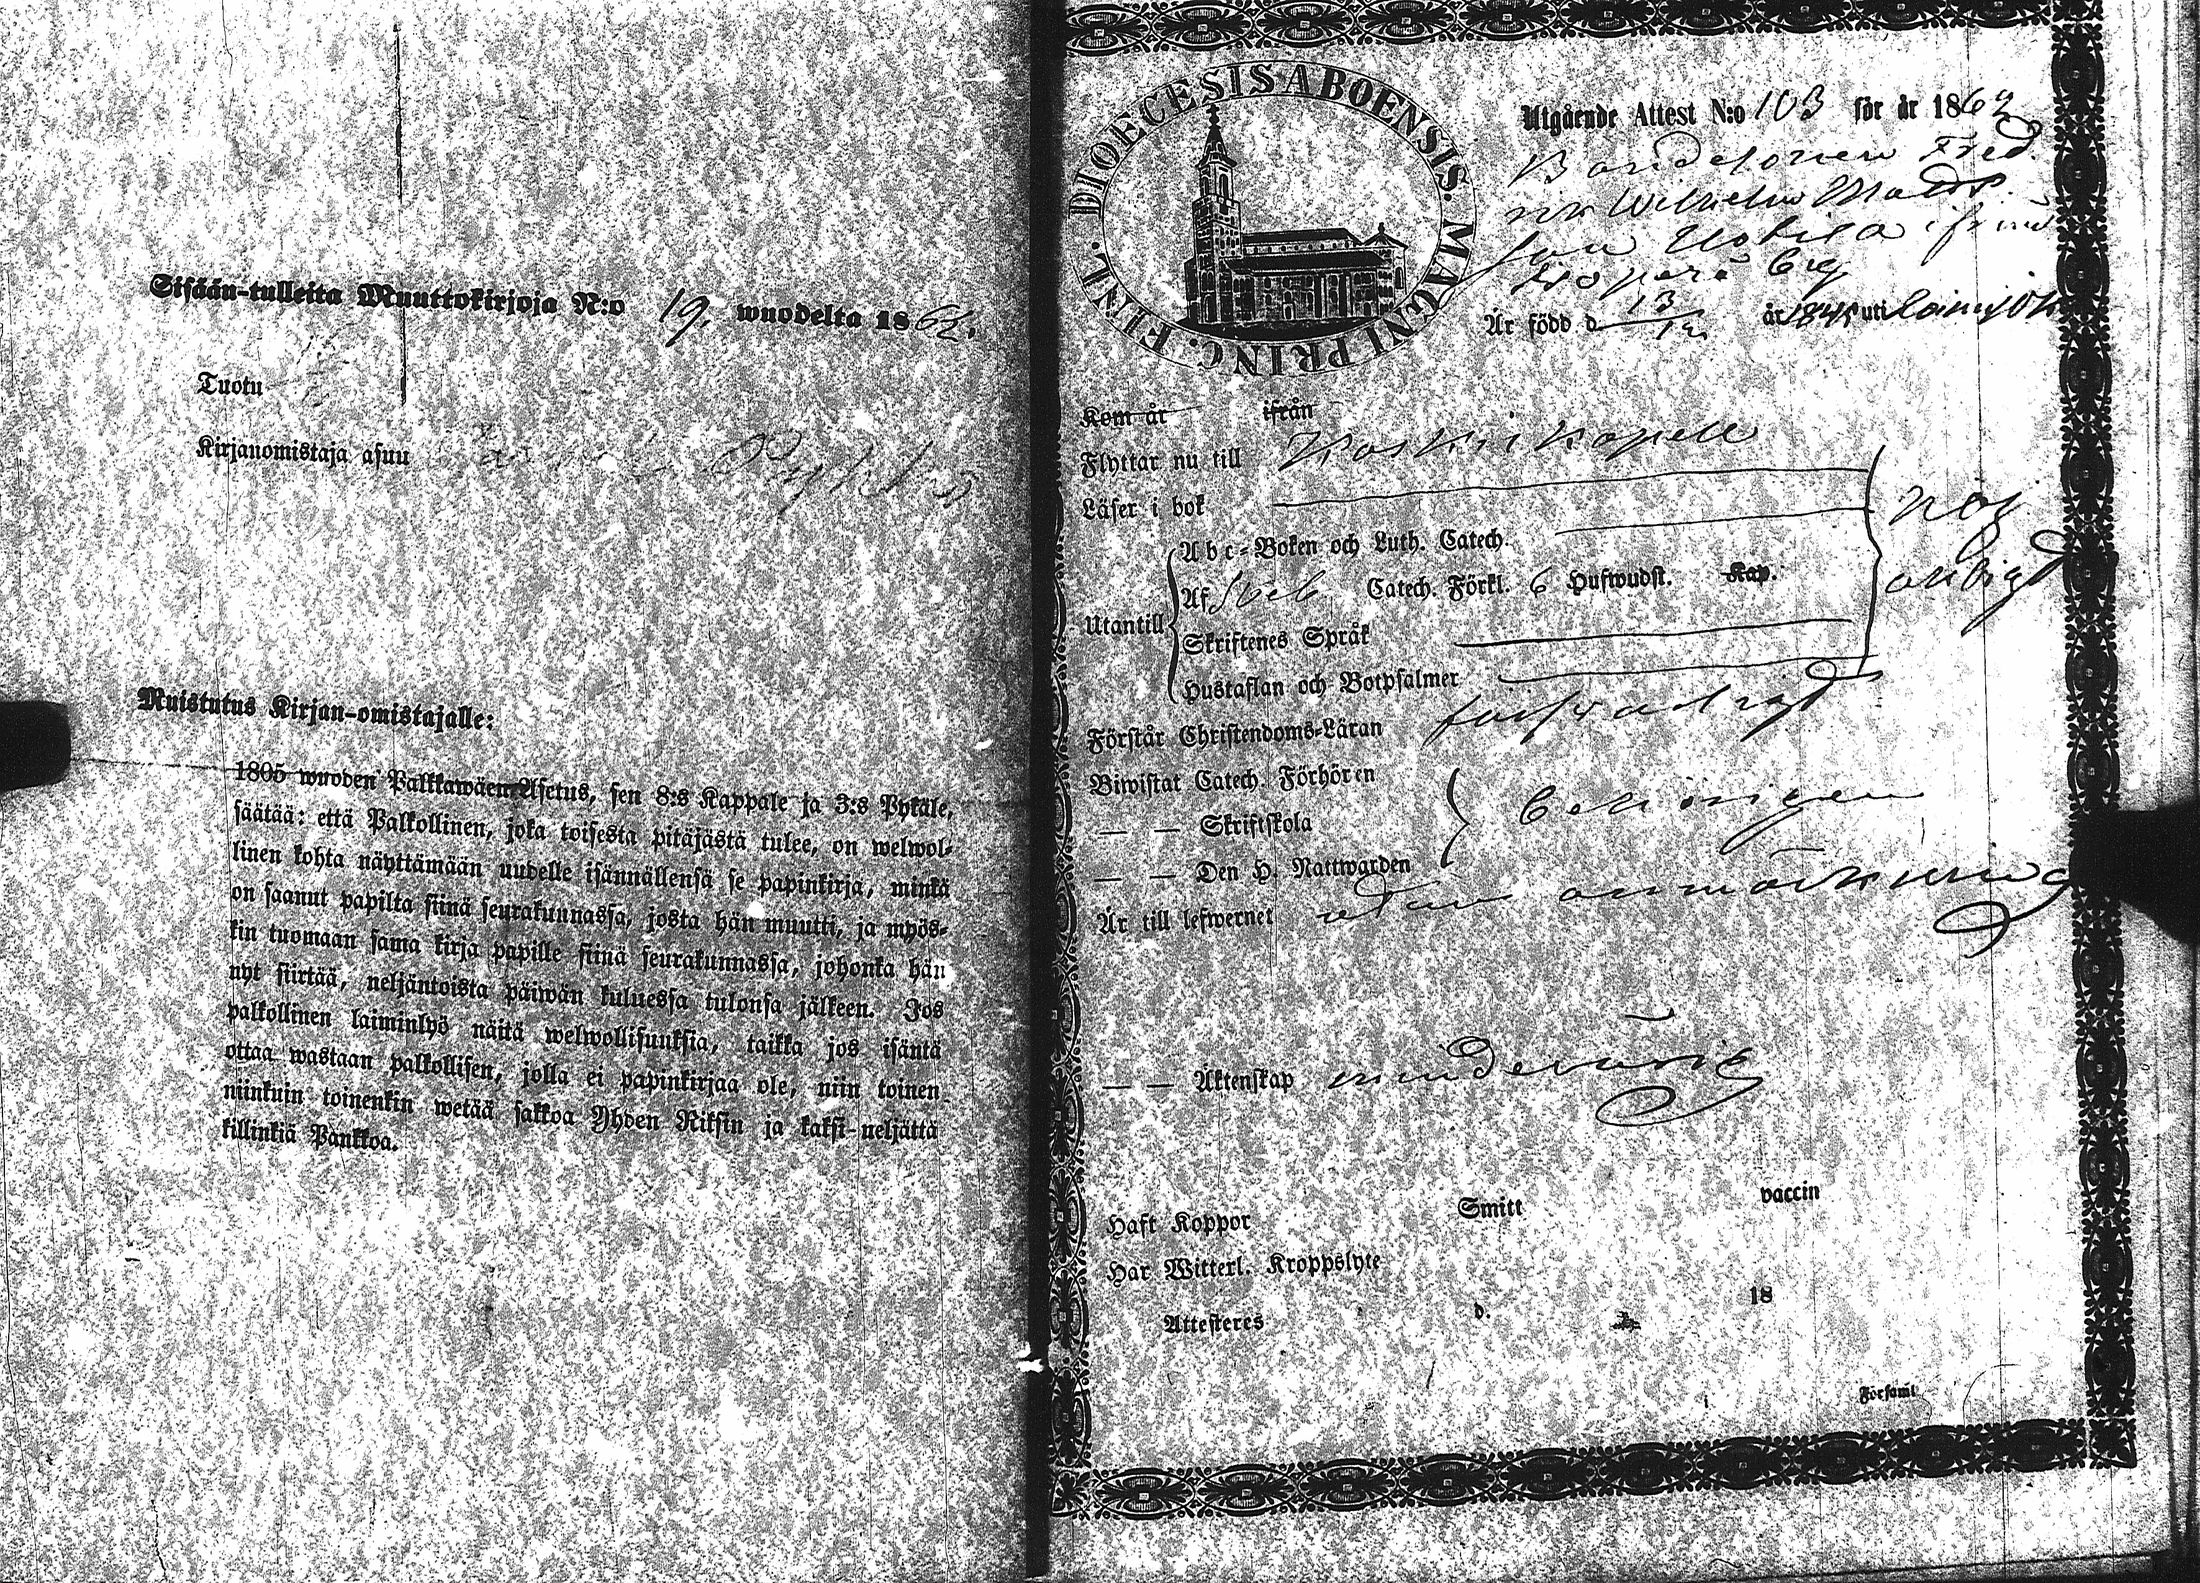 Sisään-tulleita Muuttokirjoja N:o 19. wuodelta 1862.
Tuotu
Kirjanomistaja asuu
Muistutus Kirjan-omistajalle:
1805 wuoden Palkkawäen Asetus, sen 8:s Kappale ja 3:s Pykäle,
säätää: että Palkollinen, joka toisesta pitäjästä tulee, on welwol-
linen kohta näyttämään uudelle isännällensä se papinkirja, minkä
on saanut papilta siinä seurakunnassa, josta hän muutti, ja myös-
kin tuomaan sama kirja papille siinä seurakunnassa, johonka hän
nyt siirtää, neljäntoista päiwän kuluessa tulonsa jälkeen. Jos
palkollinen laiminlyö näitä welwollisuuksia, taikka jos isäntä
ottaa wastaan palkollisen, jolla ei papinkirjaa ole, niin toinen
niinkuin toinenkin wetää sakkoa Yhden Riksin ja kaksi-neljättä
killinkiä Pankkoa.
DIOECESIS ABOENSIS. MAGNI PRINC. FINL.
Utgående Attest N:o 103 för år 1862
Bondesonen Fred
rik Wilhelm Mads
son Uotila ifrån
by
Är född d. 13/12 år 1845 uti Loimijoki
Kom år ifrån
Flyttar nu till Koskis Kapell
Läser i bok
Utantill
Abc-Boken och Luth. Catech.
Af Sveb Catech. Förkl. 6 Hufwudst. Kap.
Skriftenes Språk
Hustaflan och Botpsalmer
nöj
aktigt
Förstår Christendoms-Läran försvarligt
Biwistat Catech. Förhören
— — Skriftskola
behörigen
— — Den H. Nattwarden
Är till lefwernet utan anmärkning
— — Äktenskap minderårig
Haft Koppor Smitt vaccin
Har Witterl. Kroppslyte
Attesteres d. 18
Församl